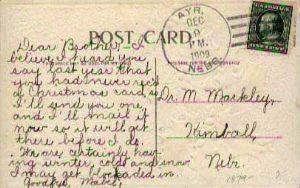 POST CARD
AYR,
DEC
9
P.M.
1909
NEBR.
Dear Brother - I
believe I heard you
say last year that
you had never rec'd
a Christmas card, so
I'll send you one,
and I'll mail it
now so it will get
there before I do.
We are certainly hav-
ing winter, cold and snow
I may get blockaded in.
Goodbye, Mabel,
Dr. M. Mackley,
Kimball,
Nebr.